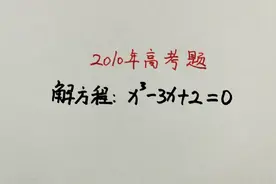 2010年高考题
解方程: x³-3x+2=0